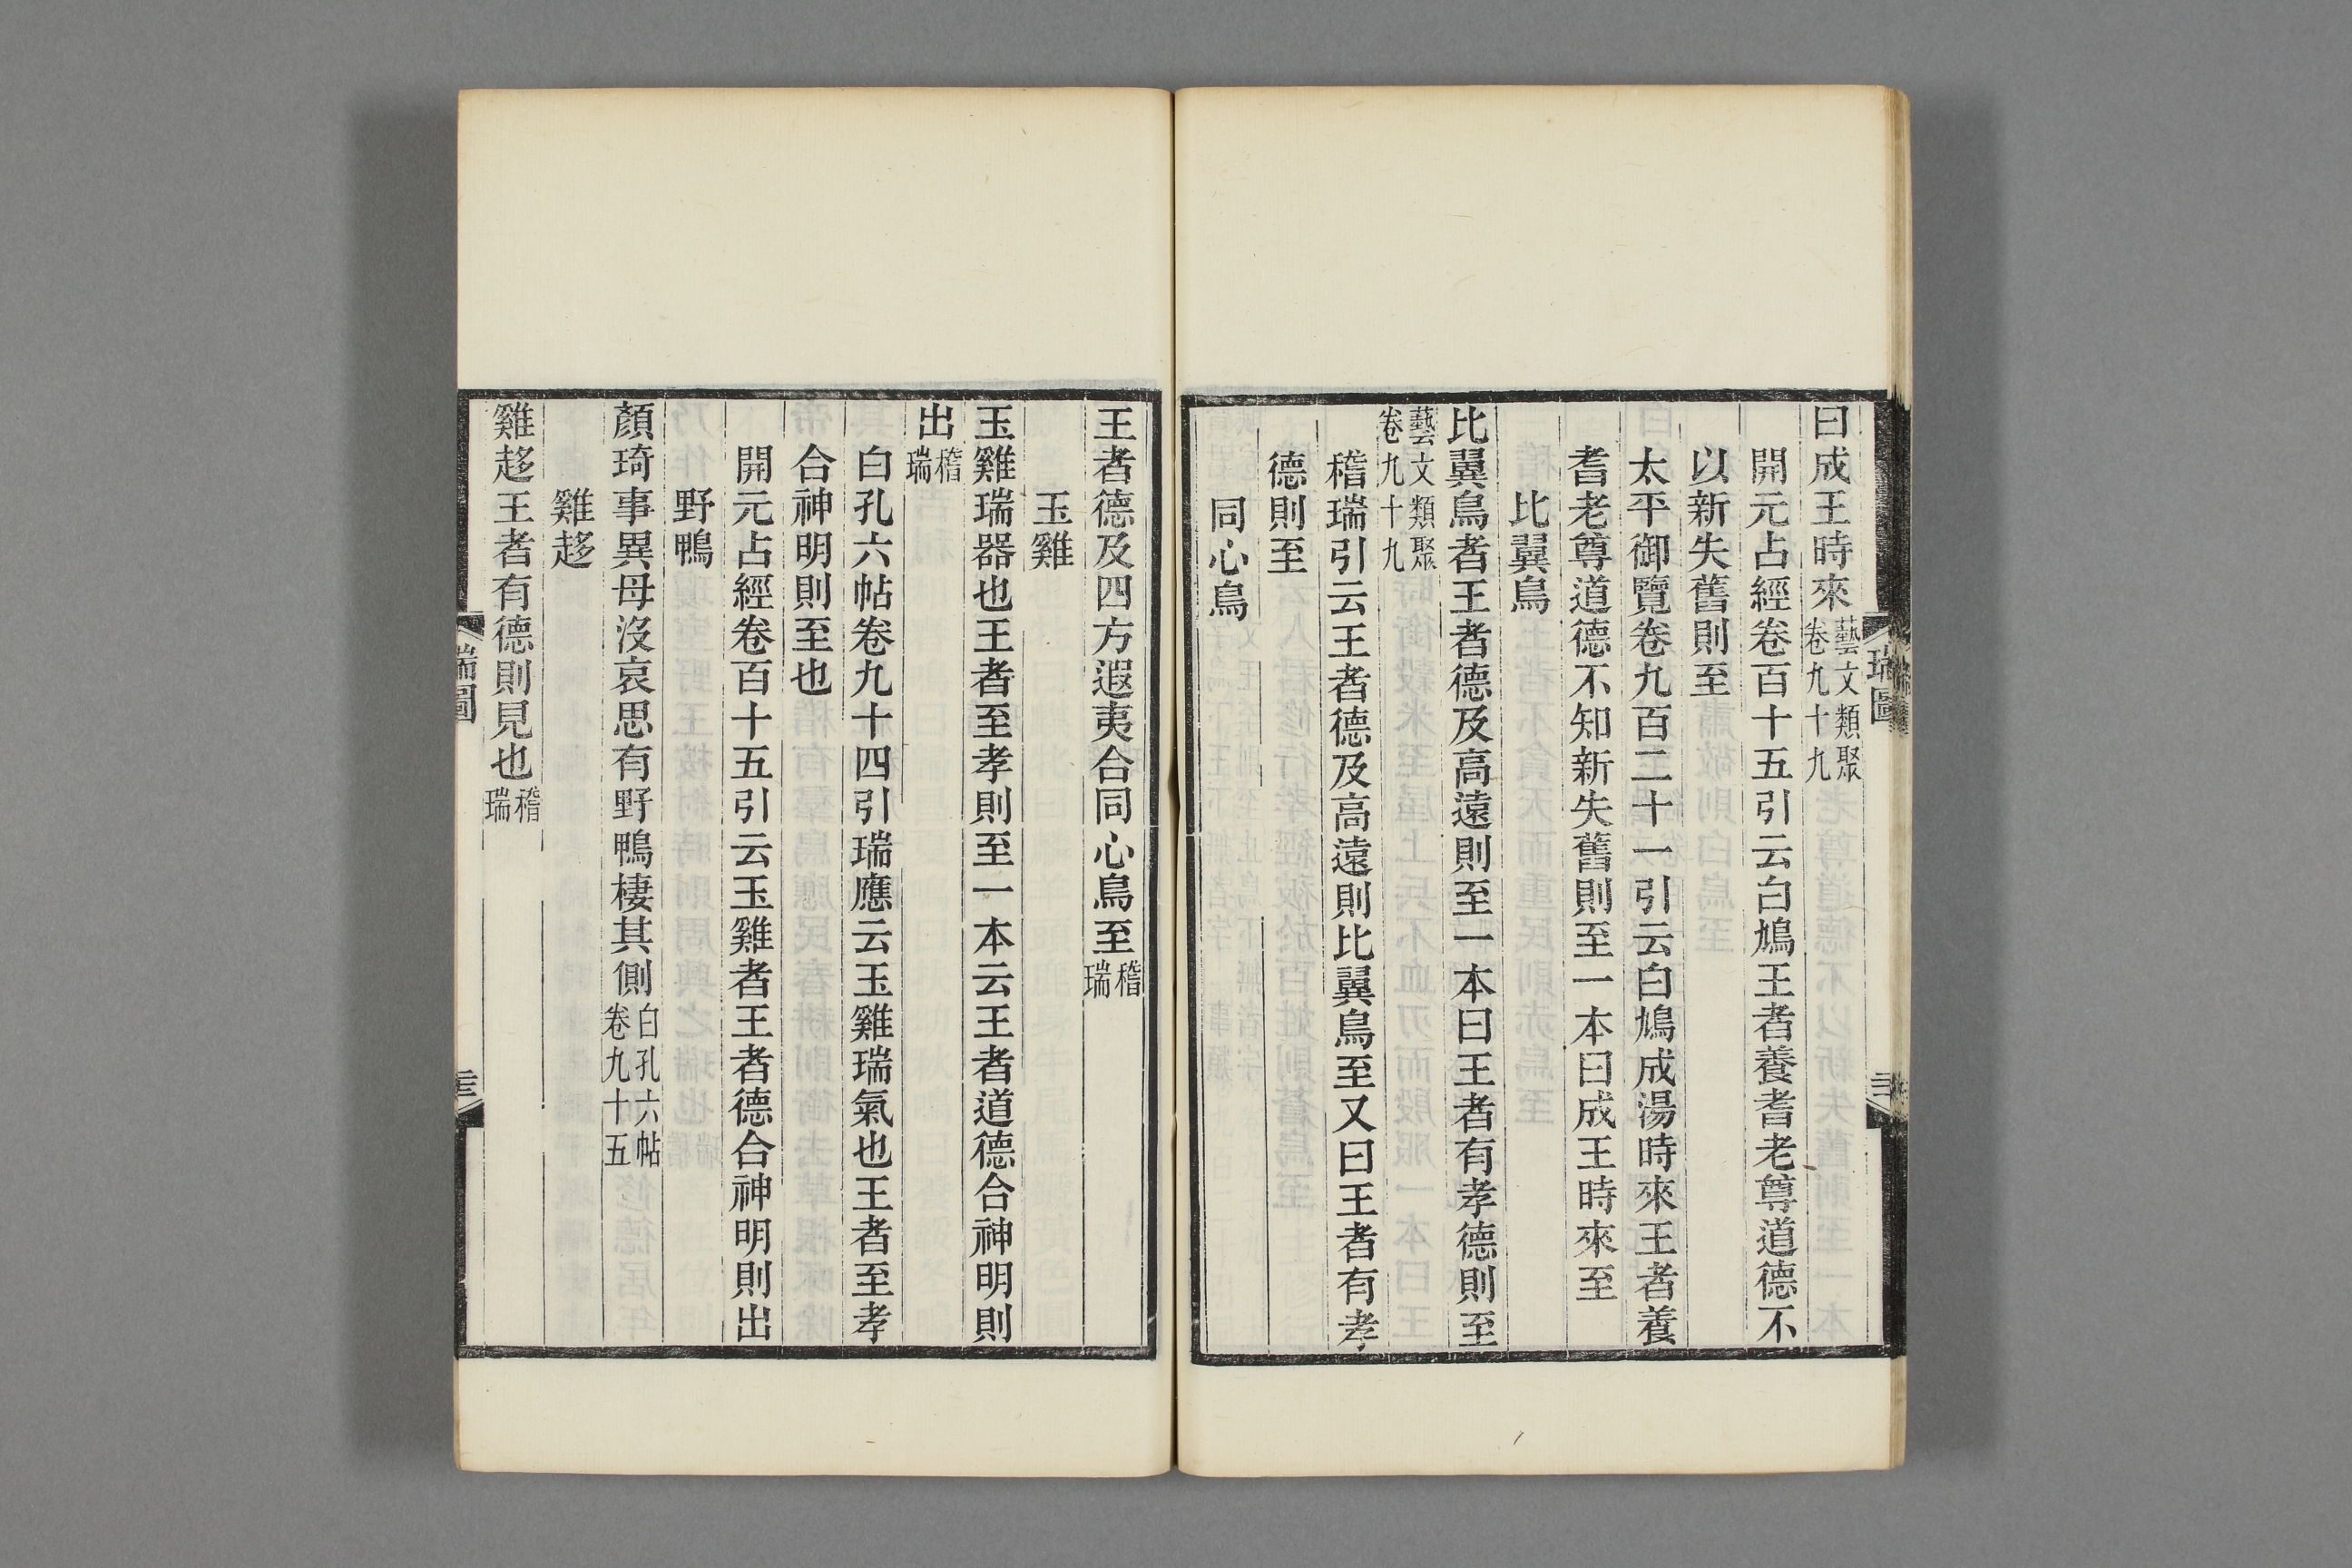 曰成王時來藝文類聚卷九十九
開元占經卷百十五引云白鳩王者養耆老尊道德不
以新失舊則至
太平御覽卷九百二十一引云白鳩成湯時來王者養
耆老尊道德不知新失舊則至一本曰成王時來至
比翼鳥
比翼鳥者王者德及高遠則至一本曰王者有孝德則至
藝文類聚卷九十九
稽瑞引云王者德及高遠則比翼鳥至又曰王者有孝
德則至
同心鳥
王者德及四方遐夷合同心鳥至稽瑞
玉雞
玉雞瑞器也王者至孝則至一本云王者道德合神明則
出稽瑞
白孔六帖卷九十四引瑞應云玉雞瑞氣也王者至孝
合神明則至也
開元占經卷百十五引云玉雞者王者德合神明則出
野鴨
顏琦事異母沒哀思有野鴨棲其側白孔六帖卷九十五
雞趍
雞趍王者有德則見也稽瑞
瑞圖